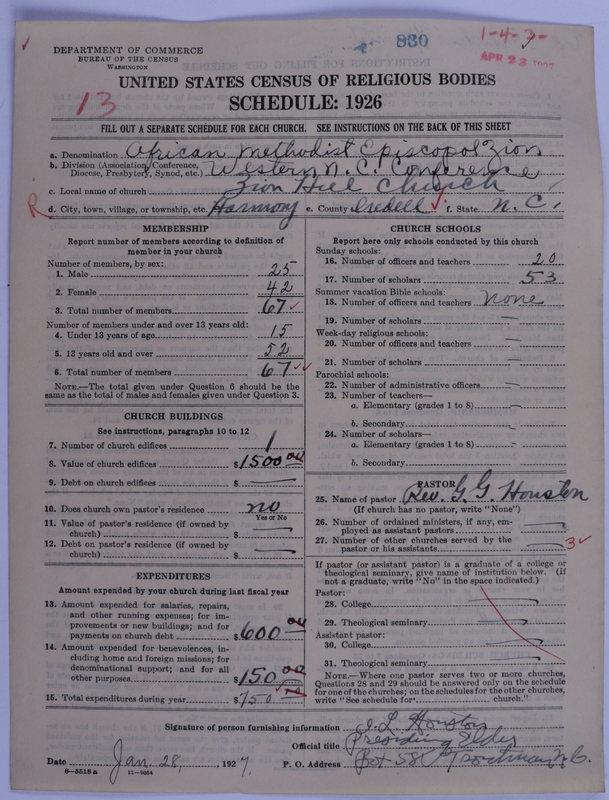 830
1-4-3-
APR 23
DEPARTMENT OF COMMERCE
BUREAU OF THE CENSUS
WASHINGTON
13
UNITED STATES CENSUS OF RELIGIOUS BODIES
SCHEDULE: 1926
FILL OUT A SEPARATE SCHEDULE FOR EACH CHURCH. SEE INSTRUCTIONS ON THE BACK OF THIS SHEET
a. Denomination African Methodist Episcopol Zion
b. Division (Association, Conference, Diocese, Presbytery, Synod, etc.) Western N.C. Conference
c. Local name of church Zion Hill Church
R d. City, town, village, or township, etc. Harmony e. County Iredell f. State N.C.
MEMBERSHIP
Report number of members according to definition of member in your church
Number of members, by sex:
1. Male 25
2. Female 42
3. Total number of members 67
Number of members under and over 13 years old:
4. Under 13 years of age 15
5. 13 years old and over 52
6. Total number of members 67
NOTE.—The total given under Question 6 should be the same as the total of males and females given under Question 3.
CHURCH BUILDINGS
See instructions, paragraphs 10 to 12
7. Number of church edifices 1
8. Value of church edifices $1500 00
9. Debt on church edifices $
10. Does church own pastor's residence no
Yes or No
11. Value of pastor's residence (if owned by church) $
12. Debt on pastor's residence (if owned by church) $
EXPENDITURES
Amount expended by your church during last fiscal year
13. Amount expended for salaries, repairs, and other running expenses; for improvements or new buildings; and for payments on church debt $600 00
14. Amount expended for benevolences, including home and foreign missions; for denominational support; and for all other purposes $150 00
15. Total expenditures during year $750
CHURCH SCHOOLS
Report here only schools conducted by this church
Sunday schools:
16. Number of officers and teachers 20
17. Number of scholars 53
Summer vacation Bible schools:
18. Number of officers and teachers none
19. Number of scholars
Week-day religious schools:
20. Number of officers and teachers
21. Number of scholars
Parochial schools:
22. Number of administrative officers
23. Number of teachers—
a. Elementary (grades 1 to 8)
b. Secondary
24. Number of scholars—
a. Elementary (grades 1 to 8)
b. Secondary
PASTOR
25. Name of pastor Rev. G. G. Houston
(If church has no pastor, write "None")
26. Number of ordained ministers, if any, employed as assistant pastors
27. Number of other churches served by the pastor or his assistants 3
If pastor (or assistant pastor) is a graduate of a college or theological seminary, give name of institution below. (If not a graduate, write "No" in the space indicated.)
Pastor:
28. College
29. Theological seminary
Assistant pastor:
30. College
31. Theological seminary
NOTE.—Where one pastor serves two or more churches, Questions 28 and 29 should be answered only on the schedule for one of the churches; on the schedules for the other churches, write "See schedule for church."
Signature of person furnishing information J. L. Houston
Official title Presiding Elder
Date Jan. 28, 1927. P. O. Address Box 58 Troutman, N.C.
8—5518 a 11—9034